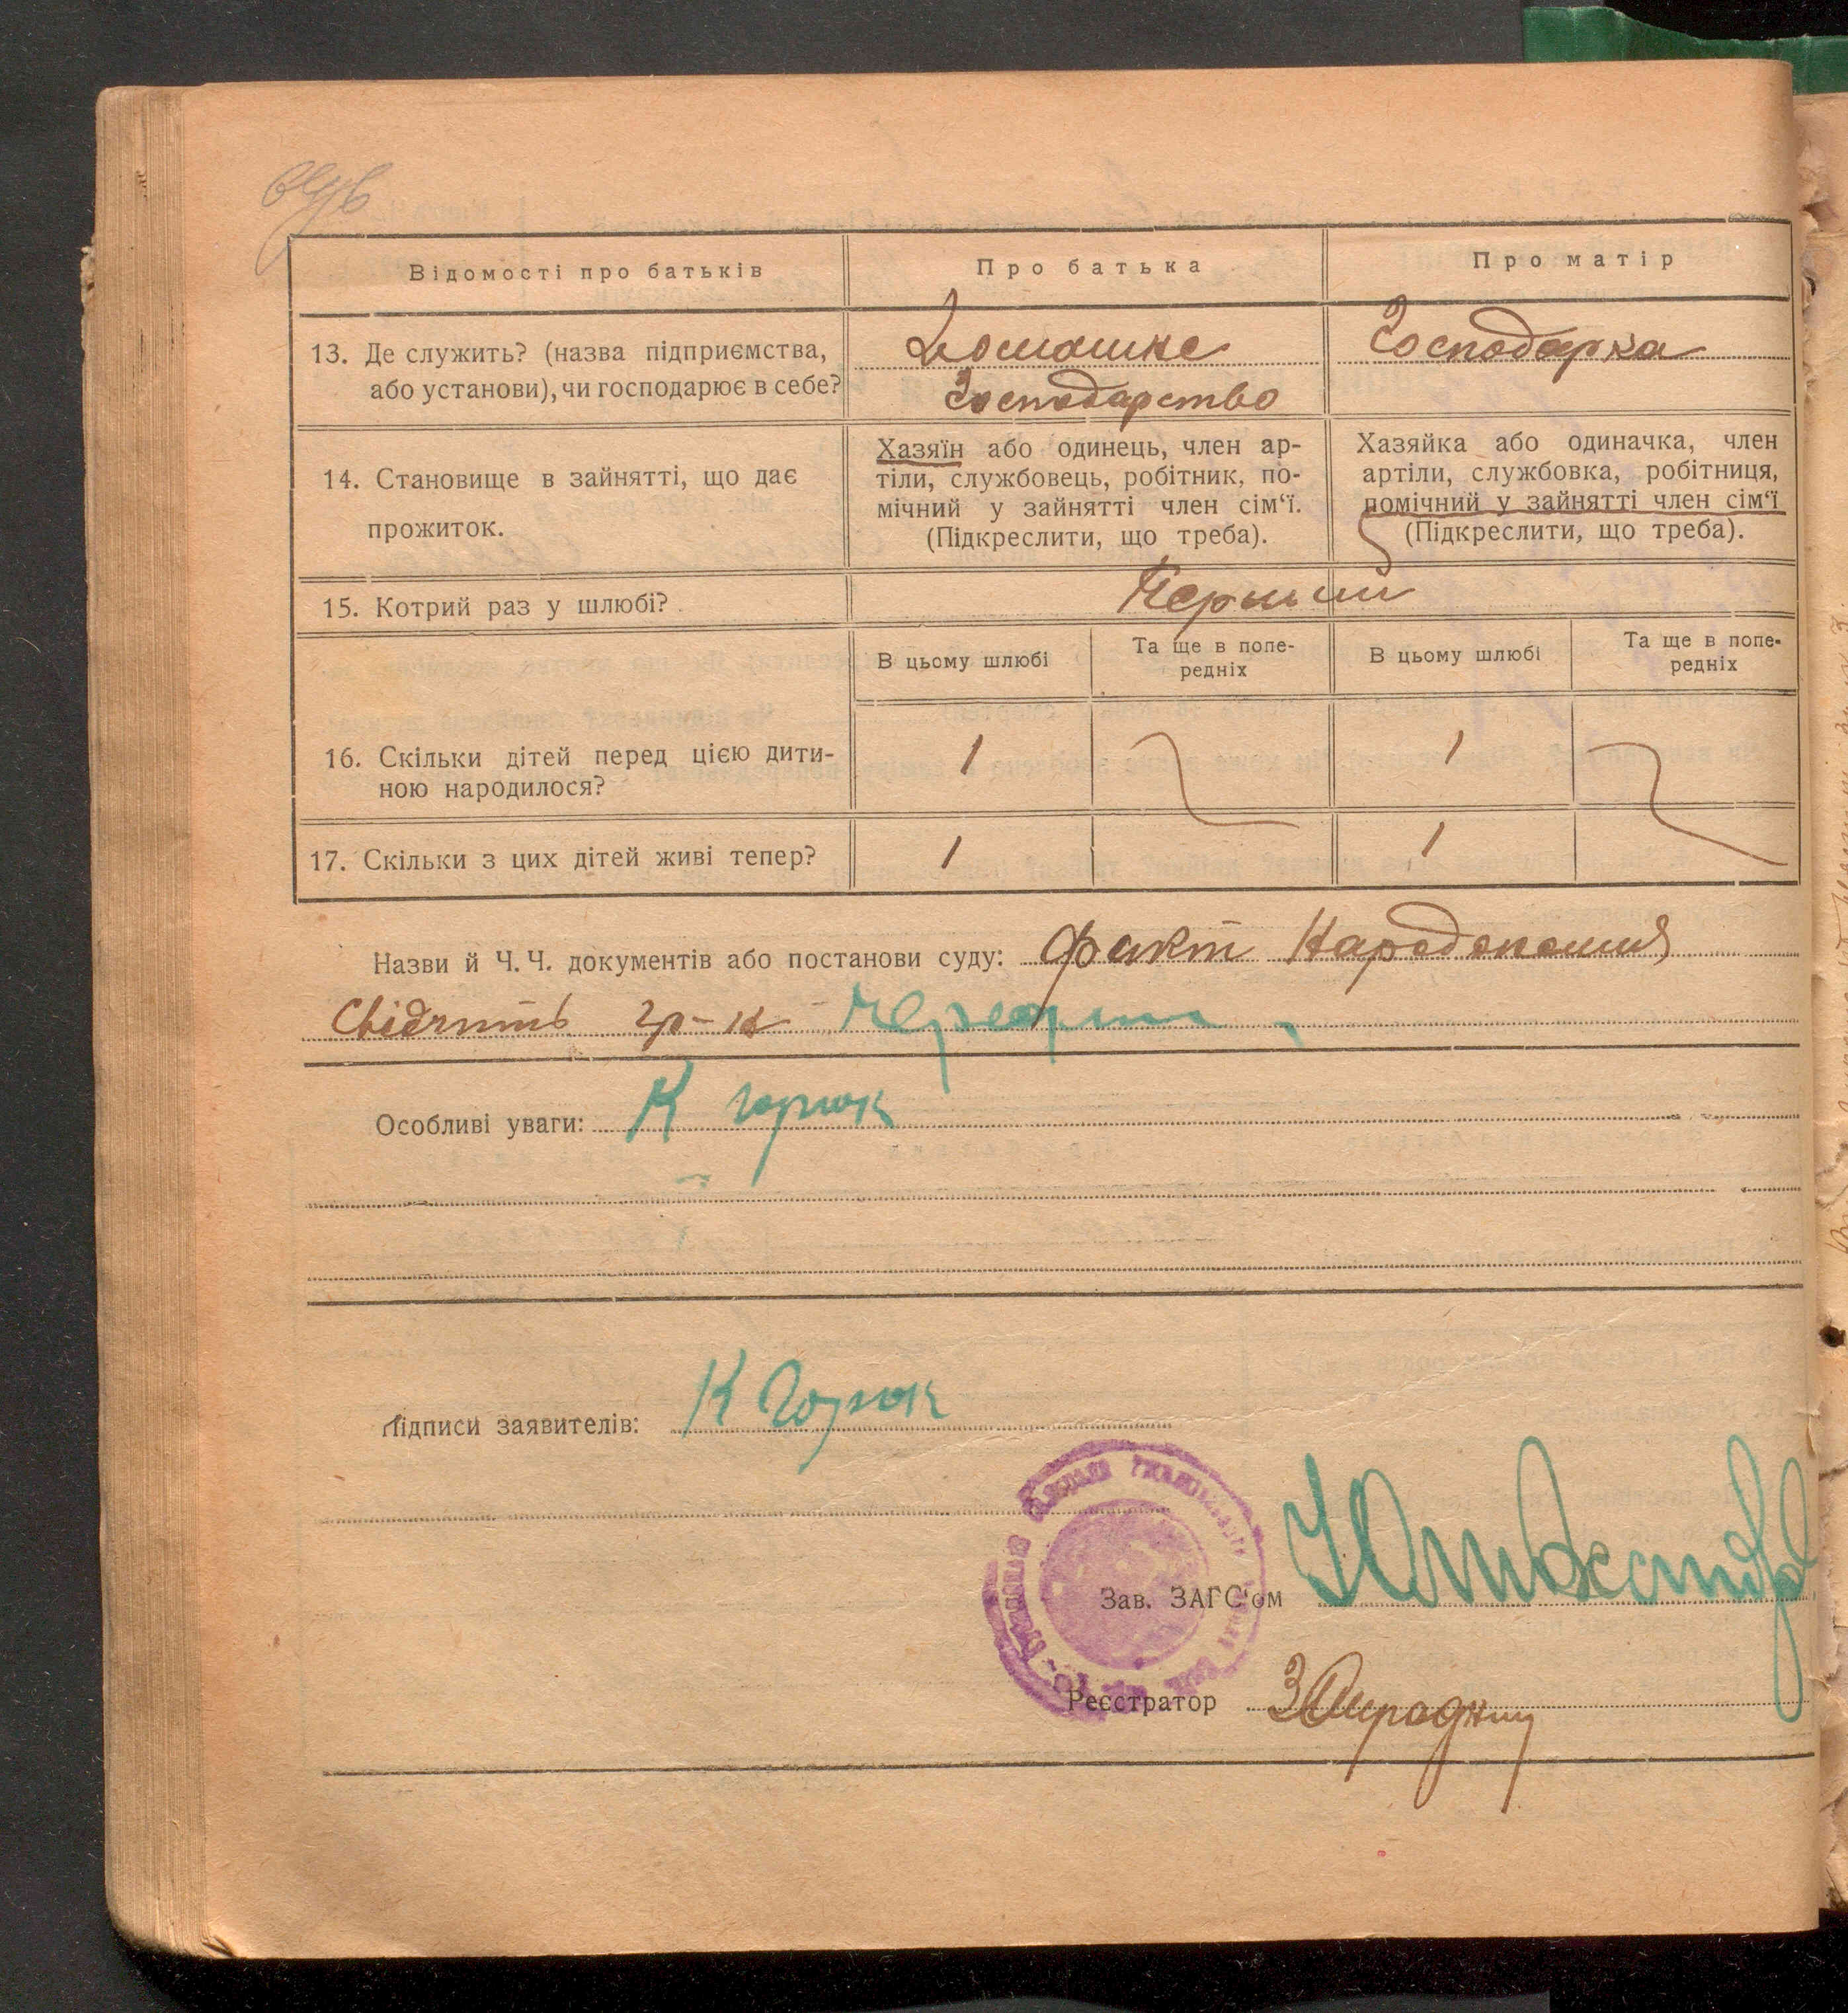 Відомості про батьків
Про батька
Про матір
13. Де служить? (назва підприємства,
або установи), чи господарює в себе?
Домашнє
Господарство
Господарка
14. Становище в зайнятті, що дає
прожиток.
Хазяїн або одинець, член ар-
тіли, службовець, робітник, по-
мічний у зайнятті член сім‘ї.
(Підкреслити, що треба).
Хазяйка або одиначка, член
артіли, службовка, робітниця,
помічний у зайнятті член сім‘ї
(Підкреслити, що треба).
15. Котрий раз у шлюбі?
Перший
В цьому шлюбі
Та ще в попе-
редніх
В цьому шлюбі
Та ще в попе-
редніх
16. Скільки дітей перед цією дити-
ною народилося?
1
1
17. Скільки з цих дітей живі тепер?
1
1
Назви й Ч. Ч. документів або постанови суду: факт
Свідчить гр-н
Особливі уваги: К Горюк
Підписи заявителів: К Горюк
Зав. ЗАГС'ом
Реєстратор